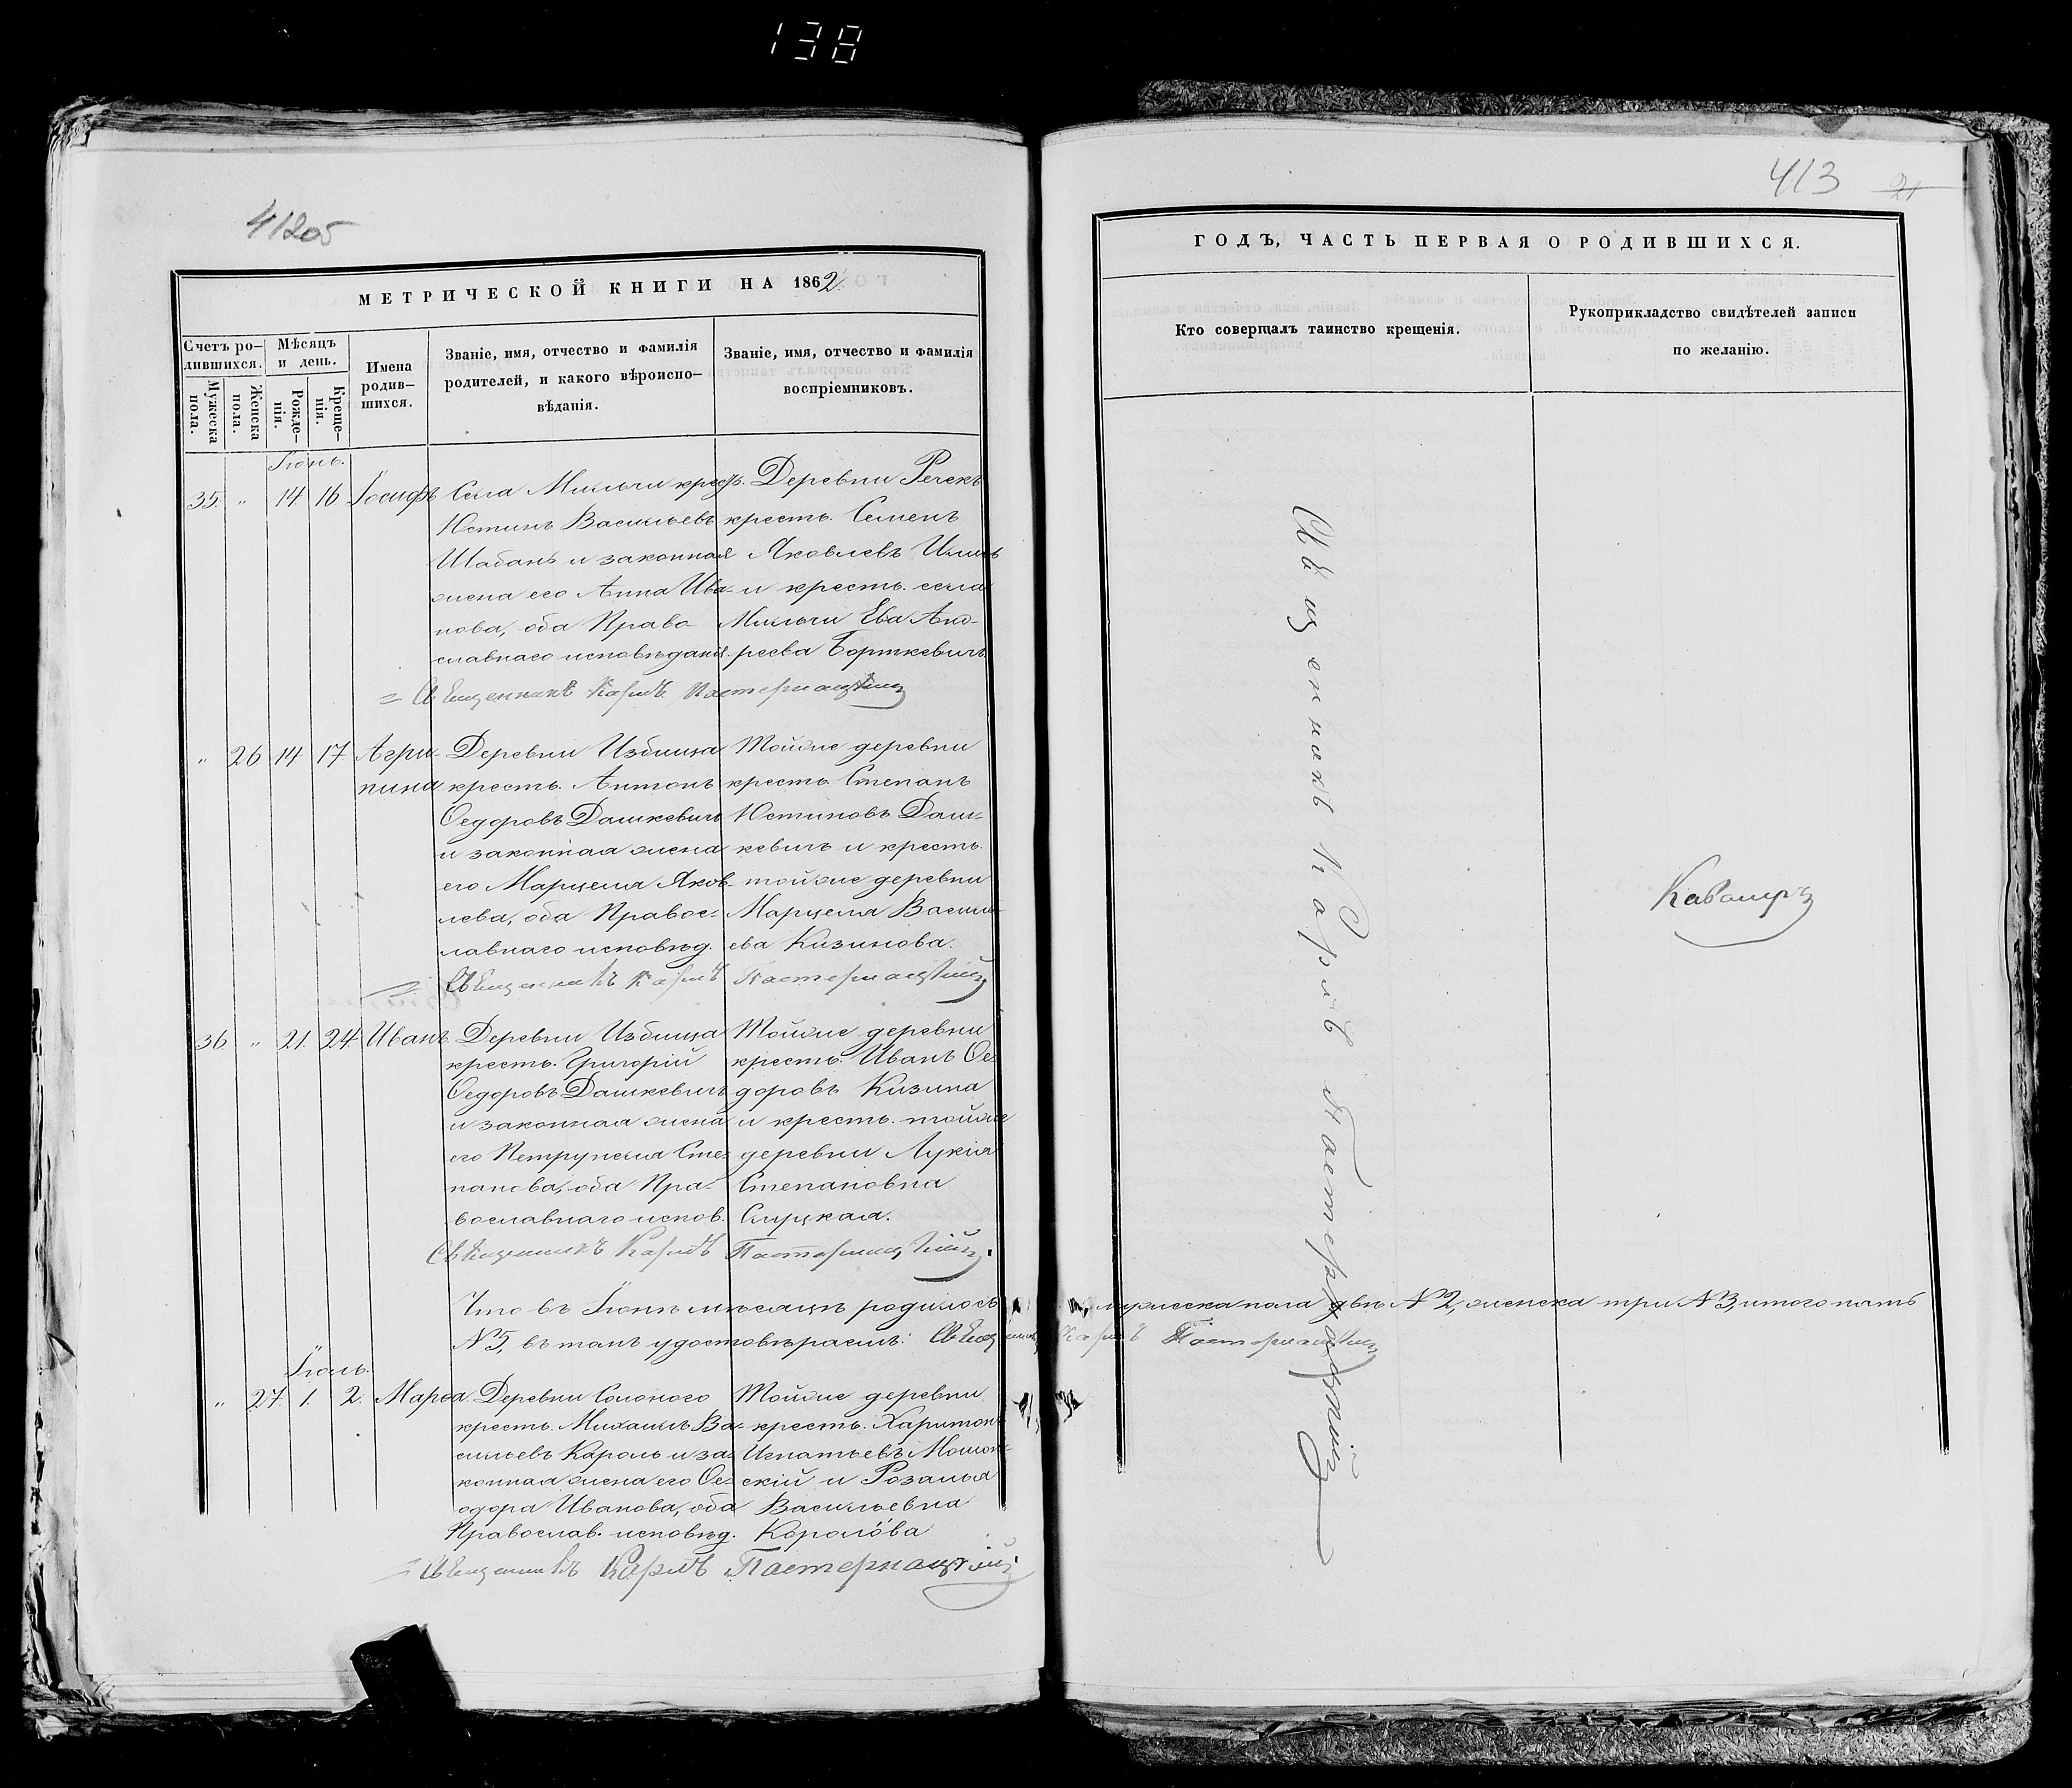 138
412об
МЕТРИЧЕСКОЙ КНИГИ НА 1862
Счетъ ро-
дившихся.
Мужеска
пола.
Женска
пола.
Мѣсяцъ
и день.
Рожде-
нія.
Креще-
нія.
Имена
родив-
шихся.
Званіе, имя, отчество и фамилія
родителей, и какого вѣроиспо-
вѣданія.
Званіе, имя, отчество и фамилія
воспріемниковъ.
Іюнь.
35. " 14. 16 Іосифъ
Села Мильчи крест.
Юстинъ Васильевъ
Шабанъ и законная
жена его Анна Ива-
нова, оба Право-
славнаго исповѣданія.
Деревни Речекъ
кресть. Семенъ
Яковлевъ
и кресть. села
Мильчи Ева Анд-
реева Борткевичъ
Священникъ Карлъ Пастернацкий
" 26 14 17 Агри-
пина
Деревни Избища
кресть. Антонъ
Ѳедоровъ Дашкевичъ
и законная жена
его Марцеля Яков-
лева, оба Правос-
лавнаго исповѣд.
Тойже деревни
кресть. Степанъ
Юстиновъ Даш-
кевичъ и кресть.
тойже деревни
Марцеля Василь-
ева Кизинова.
Священникъ Карлъ Пастернацкий
36 " 21. 24 Иванъ
Деревни Избища
кресть. Григорій
Ѳедоровъ Дашкевичъ
и законная жена
его Петрунеля Сте-
панова, оба Пра-
вославнаго испов.
Тойже деревни
кресть. Иванъ Ѳе-
доровъ Кизина
и кресть. тойже
деревни Лукія
Степановна
Слуцкая.
Священникъ Карлъ Пастернацкий
Что въ Іюнѣ мѣсяцѣ родилось
N 5, въ томъ удостовѣряемъ: Священникъ
Іюль.
" 27. 1. 2. Марѳа.
Деревни Солоного
кресть. Михаилъ Ва-
сильевъ Кароль и за-
конная жена его Ѳе-
одора Иванова, оба
Православ. исповѣд.
Тойже деревни
кресть. Харитонъ
Игнатьевъ
скій и Розалья
Васильевна
Королёва
Священникъ Карлъ Пастернацкий
413
21
ГОДЪ, ЧАСТЬ ПЕРВАЯ О РОДИВШИХСЯ.
Кто совершалъ таинство крещенія.
Рукоприкладство свидѣтелей записи
по желанію.
Священникъ Карлъ Пастернацкий
мужеска пола двѣ N 2, женска три N 3, итого пять
Карлъ Пастернацкий